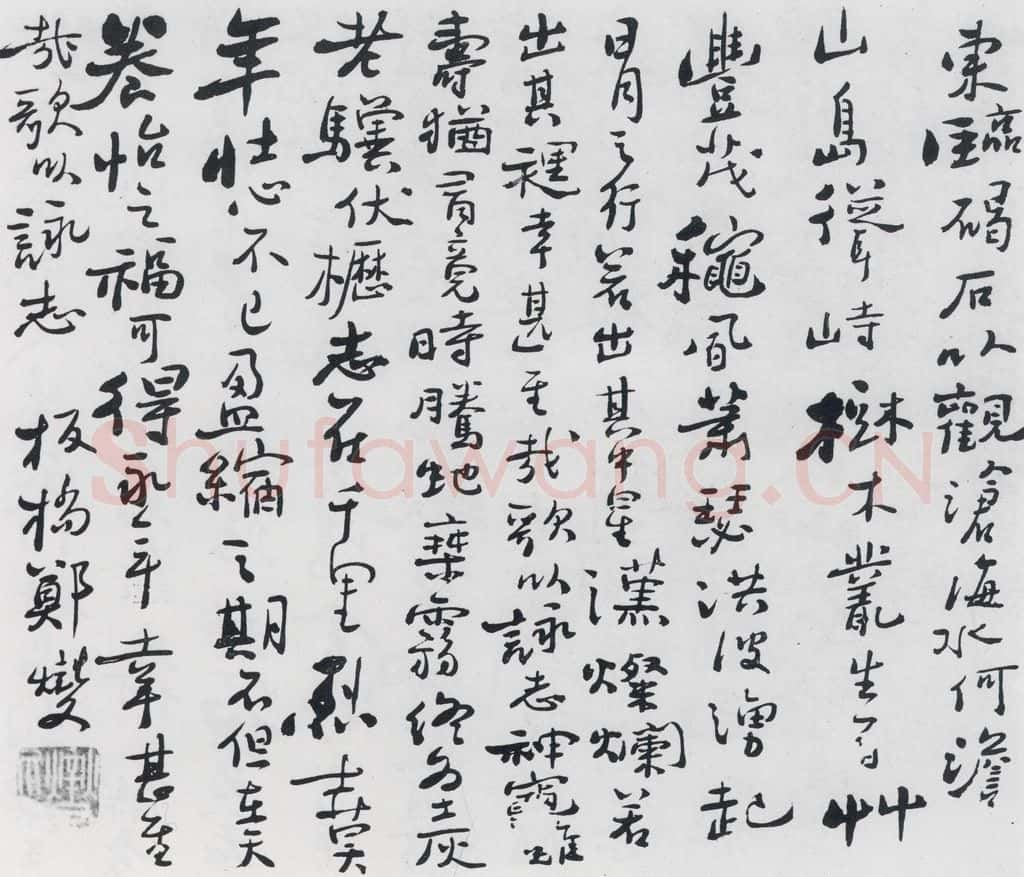 東臨碣石以觀滄海水何澹
山島聳峙樹木叢生百艸
豐茂龝風蕭瑟洪波湧起
日月之行若出其中星漢燦爛若
出其裡幸甚至哉歌以詠志神龜雖
壽猶有竟時騰虵乘霧終為土灰
老驥伏櫪志在千里烈士莫
年壯心不已盈縮之期不但在天
養怡之福可得永年幸甚至
哉歌以詠志 板橋鄭燮
Shufawang.CN